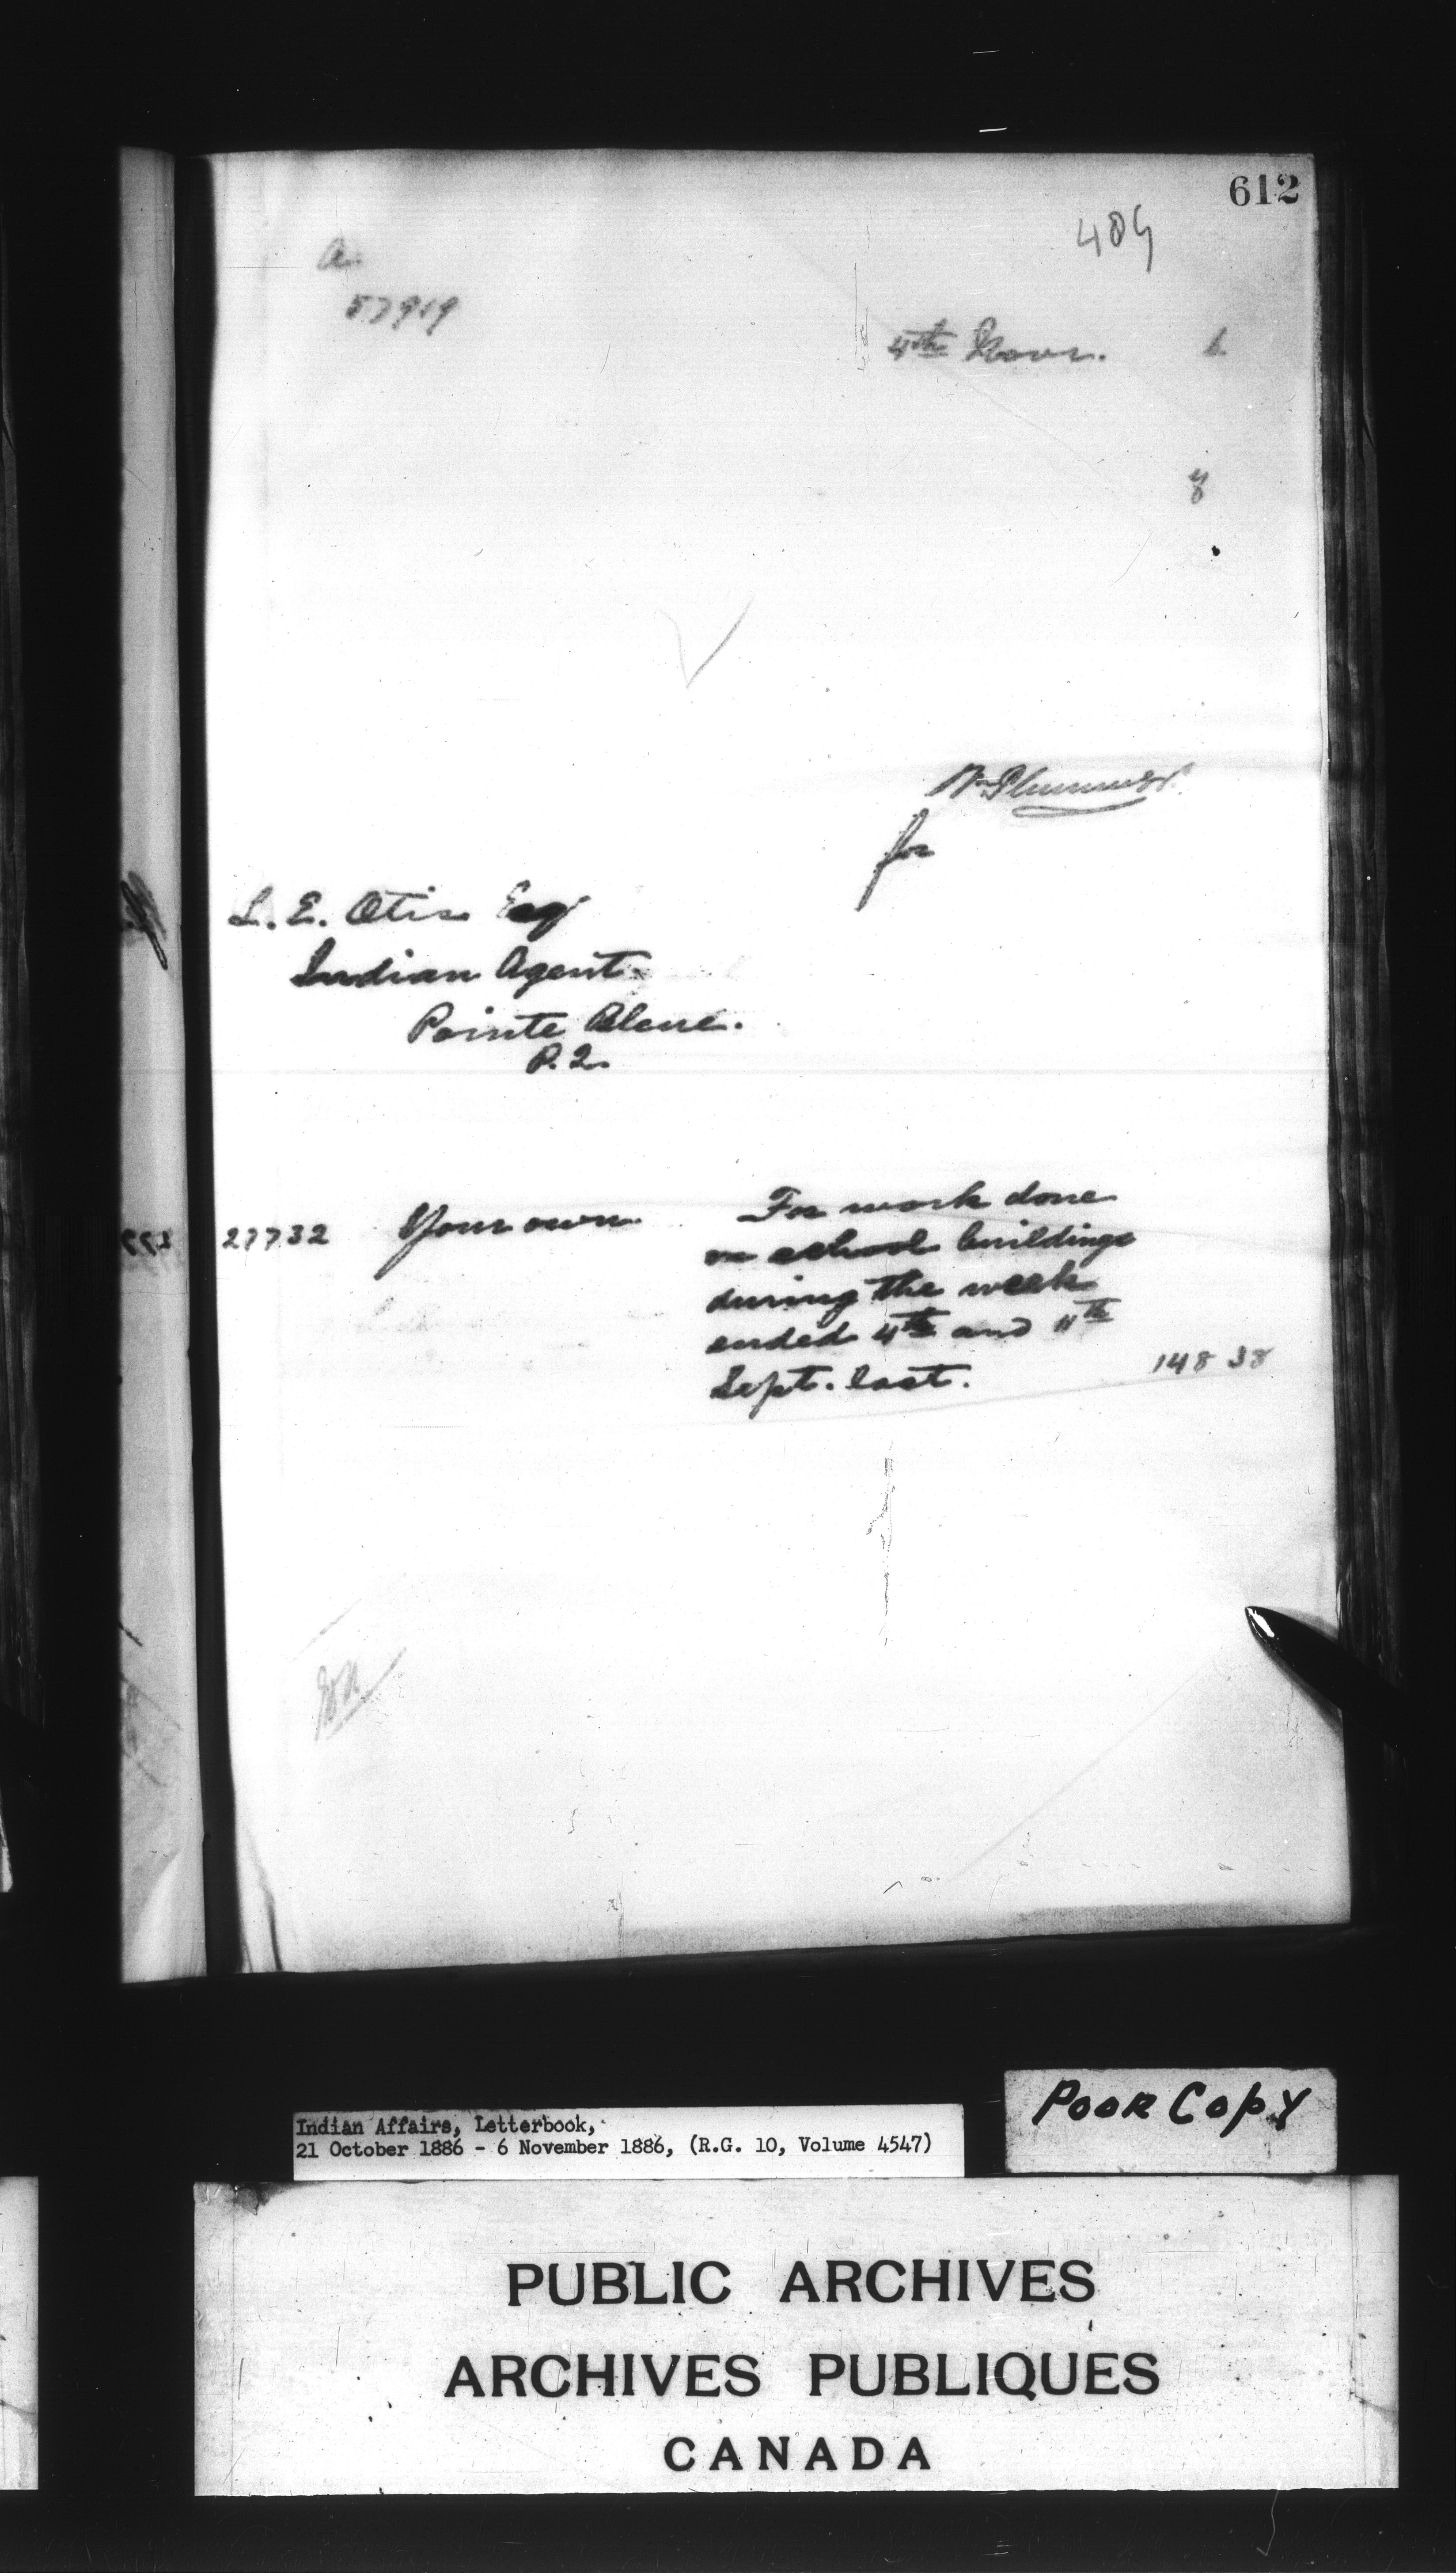 612
489
a.
57919
4th Novr. 6
y
W. Plummer
for
L. E. Otis Esq
Indian Agent
Pointe Bleue.
P. Q.
27732 Your own For work done
on school buildings
during the week
ended 4th and 11th
Sept. last. 148 38
Indian Affairs, Letterbook,
21 October 1886 - 6 November 1886, (R.G. 10, Volume 4547)
POOR COPY
PUBLIC ARCHIVES
ARCHIVES PUBLIQUES
CANADA